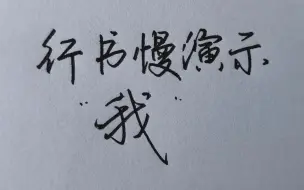 行书慢演示
“我”